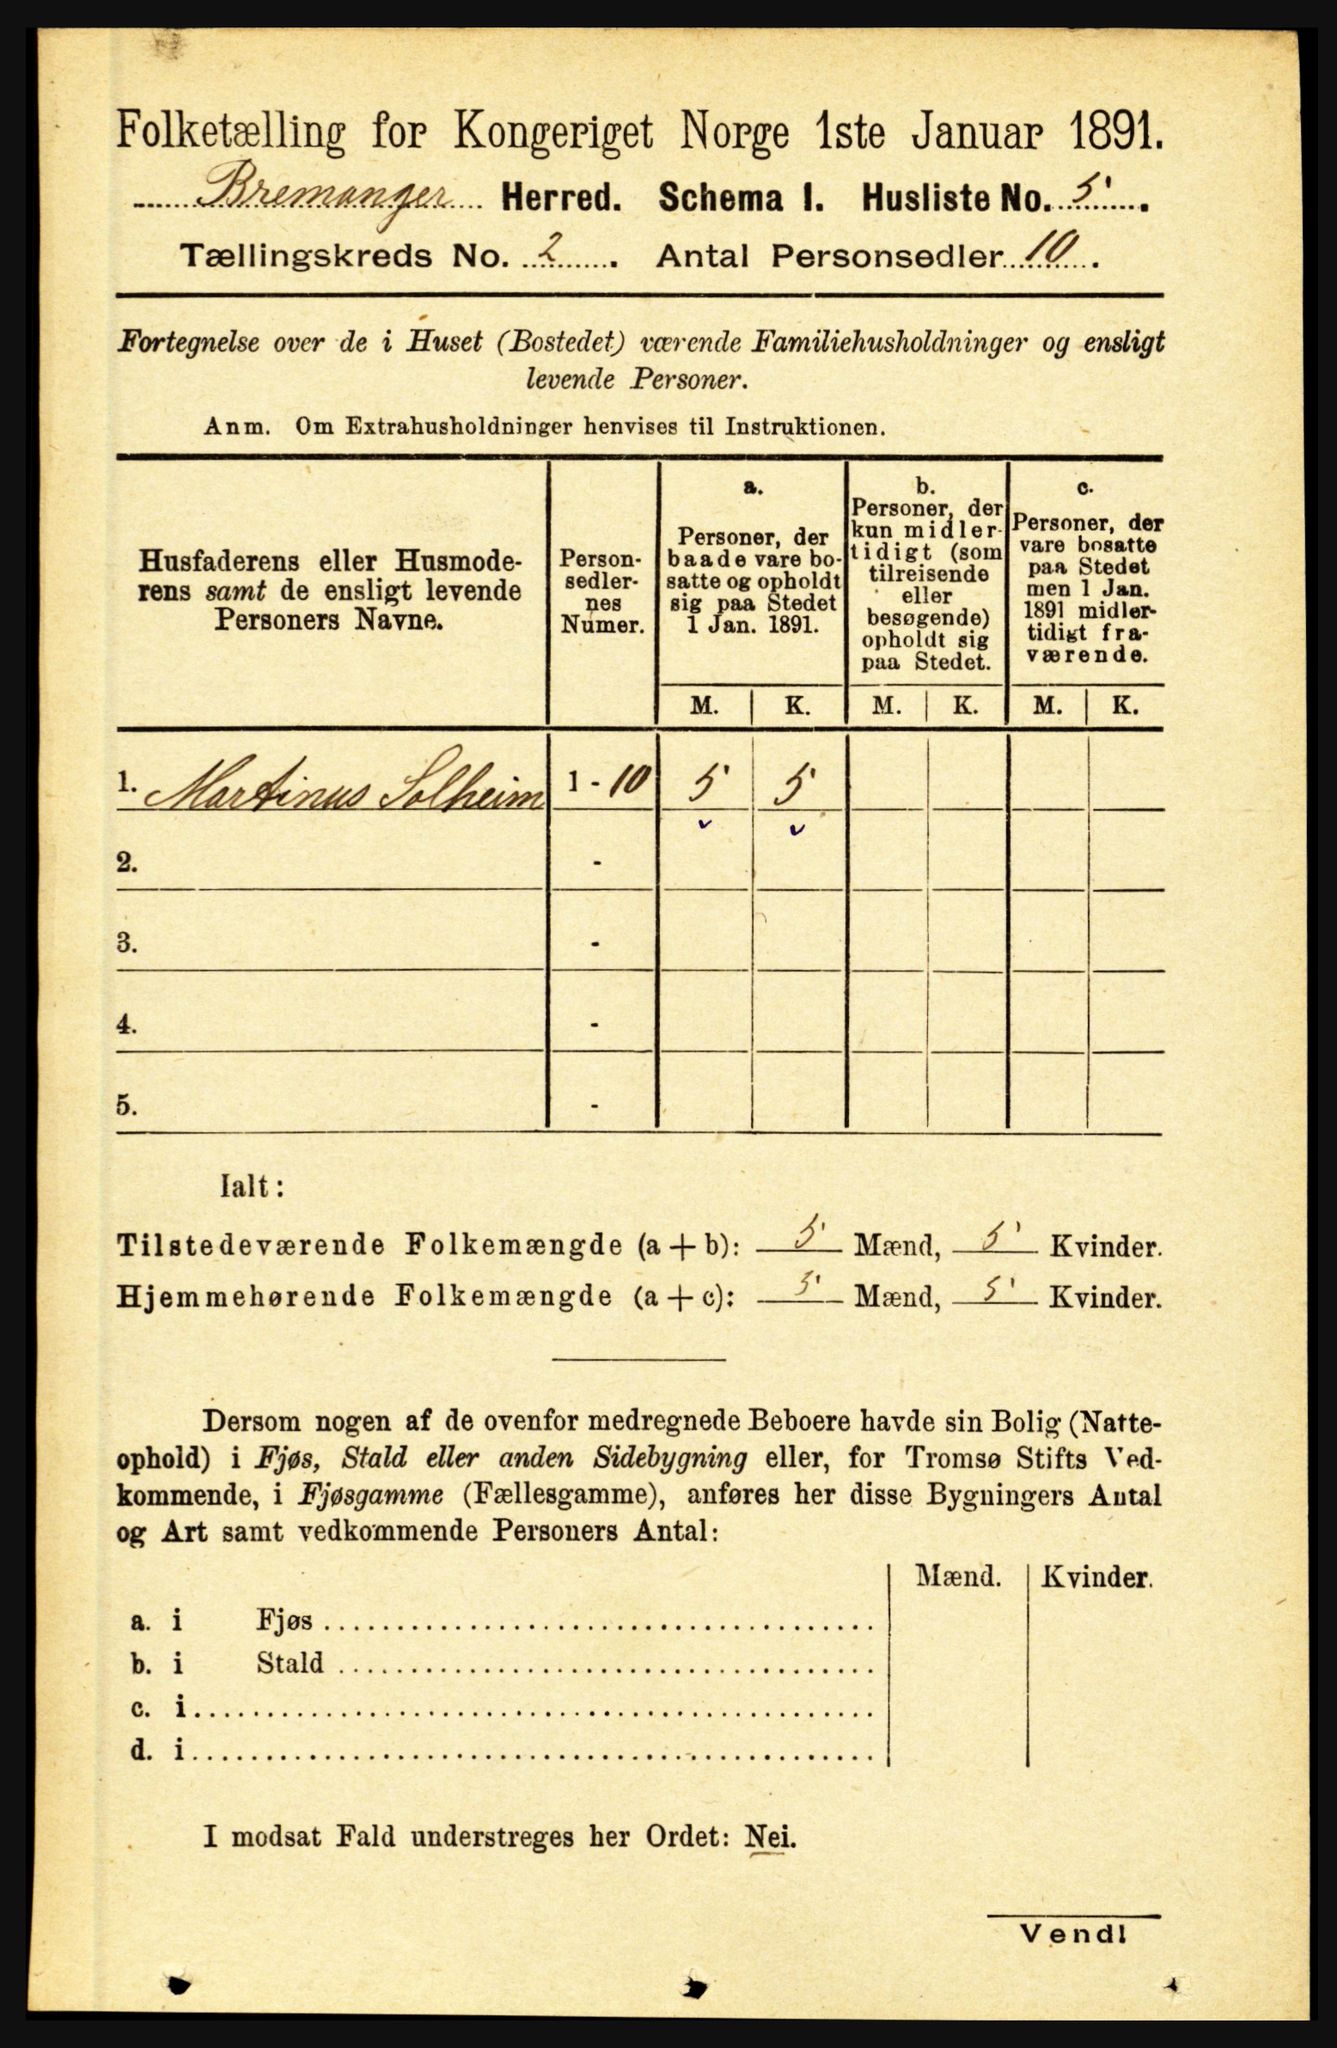 Folketælling for Kongeriget Norge 1ste Januar 1891.
Bremanger Herred. Schema I. Husliste No. 5.
Tællingskreds No. 2. Antal Personsedler 10.
Fortegnelse over de i Huset (Bostedet) værende Familiehusholdninger og ensligt
levende Personer.
Anm. Om Extrahusholdninger henvises til Instruktionen.
Husfaderens eller Husmode-
rens samt de ensligt levende
Personers Navne.
Person-
sedler-
nes
Numer.
a.
Personer, der
baade vare bo-
satte og opholdt
sig paa Stedet
1 Jan. 1891.
b.
Personer, der
kun midler-
tidigt (som
tilreisende
eller
besøgende)
opholdt sig
paa Stedet.
c.
Personer, der
vare bosatte
paa Stedet
men 1 Jan.
1891 midler-
tidigt fra-
værende.
M. K. M. K. M. K.
1. Martinus Solheim 1 - 10 5 5
2. -
3. -
4. -
5. -
Ialt:
Tilstedeværende Folkemængde (a + b): 5 Mænd, 5 Kvinder.
Hjemmehørende Folkemængde (a + c): 5 Mænd, 5 Kvinder.
Dersom nogen af de ovenfor medregnede Beboere havde sin Bolig (Natte-
ophold) i Fjøs, Stald eller anden Sidebygning eller, for Tromsø Stifts Ved-
kommende, i Fjøsgamme (Fællesgamme), anføres her disse Bygningers Antal
og Art samt vedkommende Personers Antal:
Mænd. Kvinder.
a. i Fjøs
b. i Stald
c. i
d. i
I modsat Fald understreges her Ordet: Nei.
Vend!